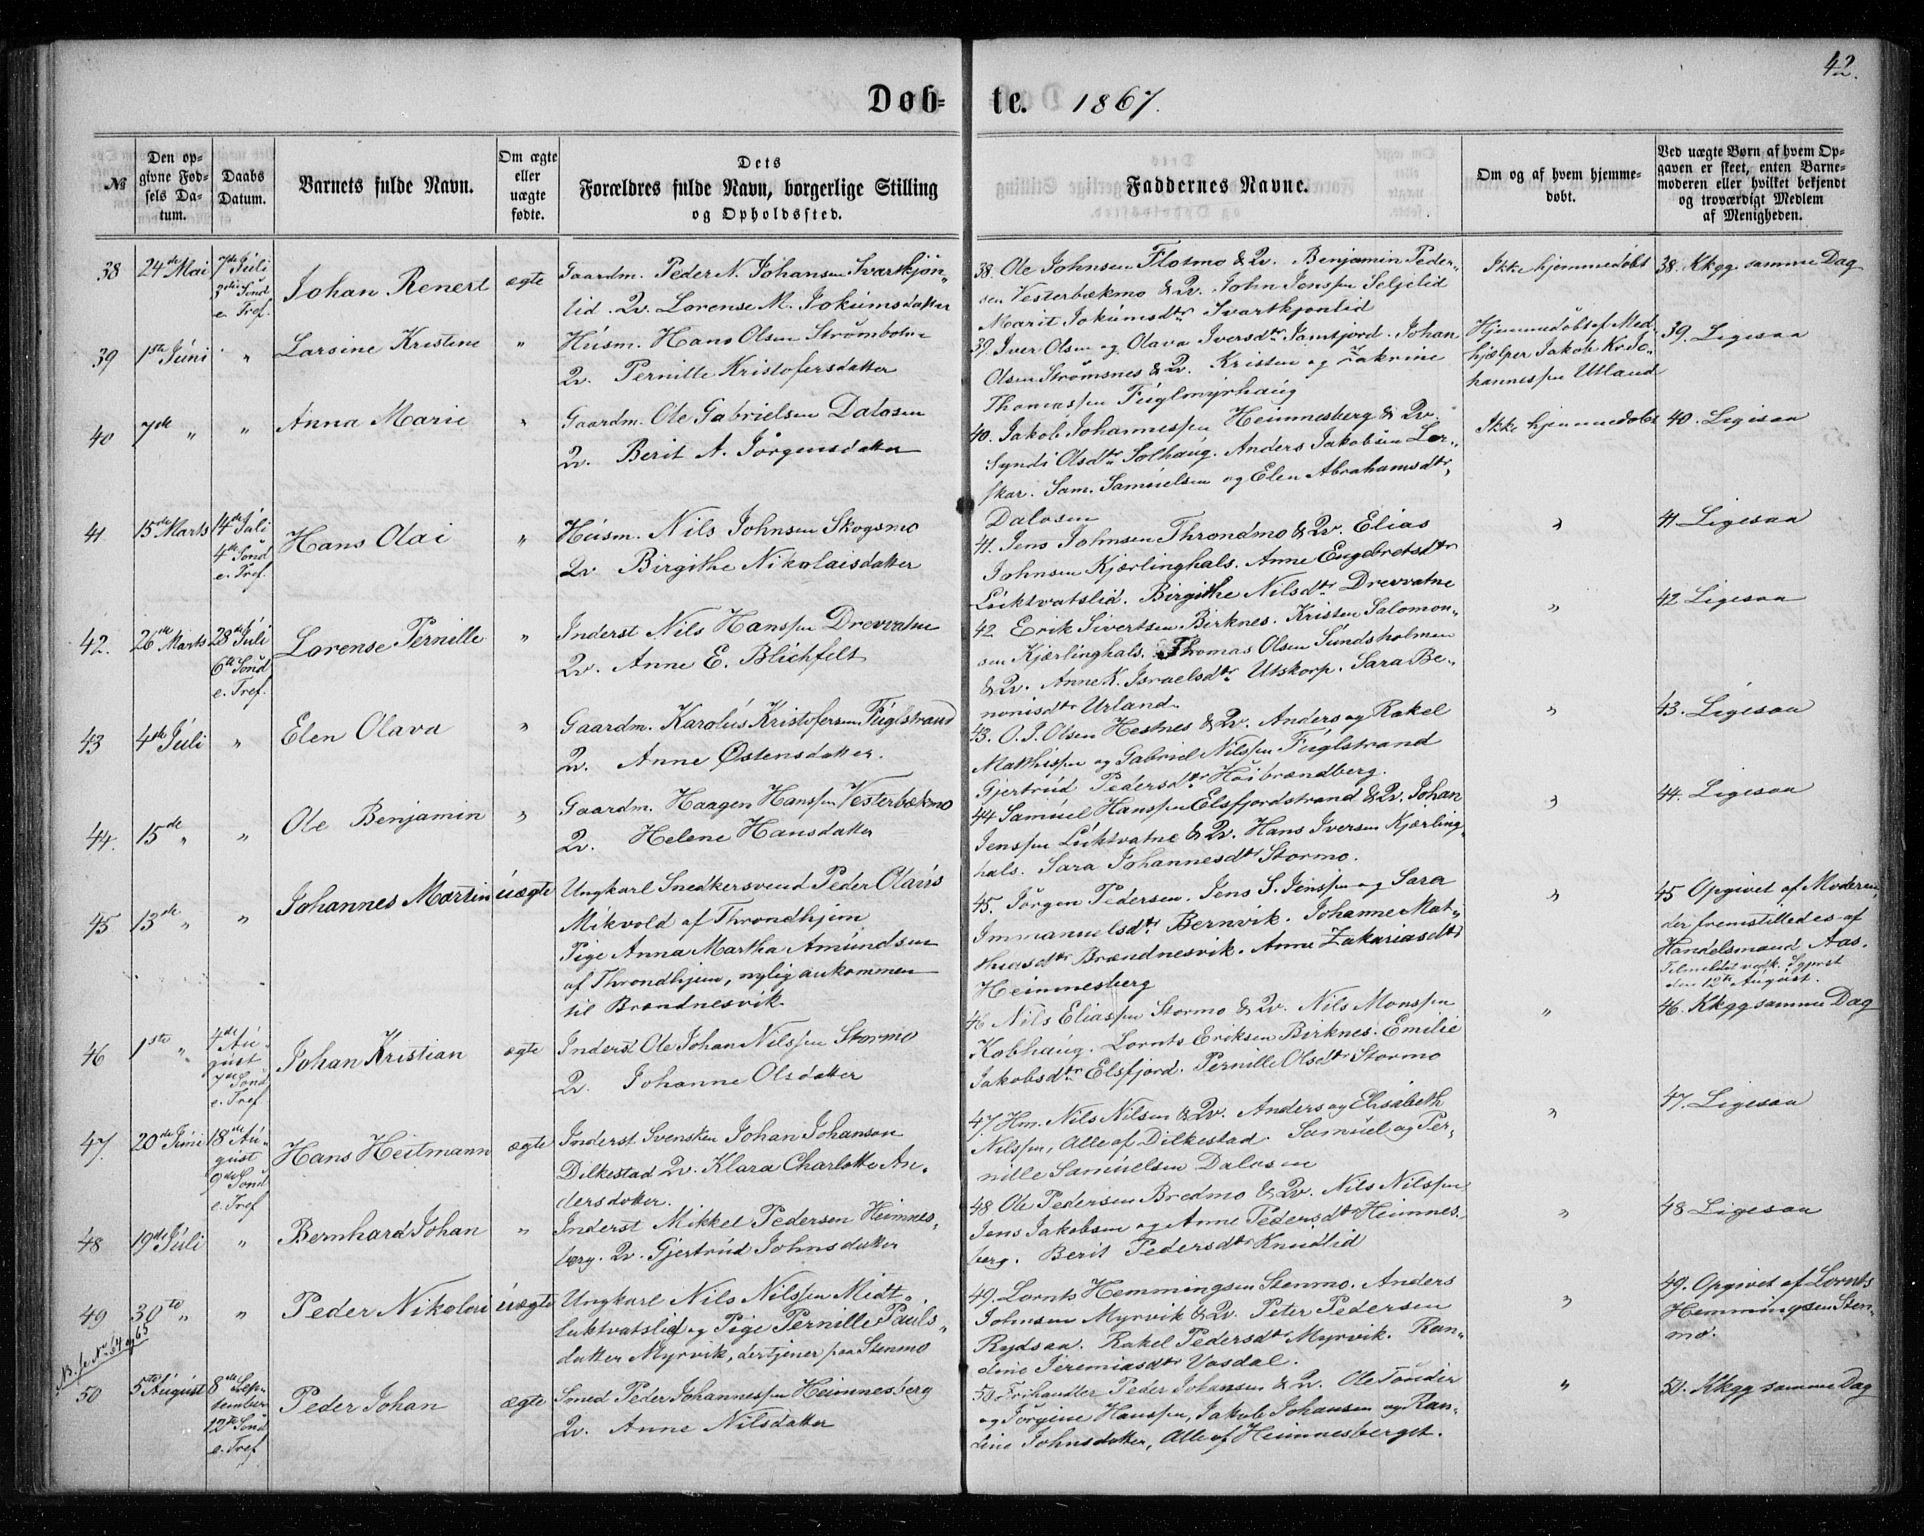 42.
Døb-te. 1867.
№
Den opgivne Fødsels Datum.
Daabs Datum.
Barnets fulde Navn.
Om ægte eller uægte fødte.
Dets Forældres fulde Navn, borgerlige Stilling og Opholdssted.
Faddernes Navne.
Om og af hvem hjemmedøbt.
Ved uægte Børn af hvem Opgaven er skeet, enten Barnemoderen eller hvilket bekjendt og troværdigt Medlem af Menigheden.
38 24de Mai 7de Juli 3die Sönd e. Tref. Johan Renert ægte
Gaardm. Peder N. Johansen Svartkjön-
lid Qv. Lorense M. Jokumsdatter
38. Ole Johnsen Flotmo & Qv. Benjamin Peder-
sen Vesterbækmo & Qv. John Jenssen Seljelid
Marit Jokumsdtr Svartkjønlid
Ikke hjemmedöbt
38. Kkgg. samme Dag
39 1ste Juni " Larsine Kristine "
Husm. Hans Olsen Strømbotn
Qv. Pernille Kristofersdatter
39. Iver Olsen og Olava Iversdtr Jamtfjord. Johan
Olsen Strømsnes & Qv. Kristen og Zakrine
Thomassen Fuglmyrhaug
Hjemmedöbt af Med-
hjælper Jakob Kr. Jo-
hannessen Utland
39. Ligesaa
40 7de " " Anna Marie "
Gaardm. Ole Gabrielsen Dalosen
Qv. Berit A. Jörgensdatter
40. Jakob Johannessen Heimnesberg & Qv.
Syndi Olsdtr Solhaug. Anders Jakobsen Lor-
skar. Sam. Samuelsen og Elen Abrahamsdtr
Dalosen
Ikke hjemmedöbt
40. Ligesaa
41 15de Marts 14de Juli 4de Sönd e. Tref. Hans Olai "
Husm. Nils Johnsen Skogsmo
Qv Birgithe Nikolaisdatter
41. Jens Johnsen Throndmo & Qv. Elias
Johnsen Kjærlinghals. Anne Engebretsdtr
Luktvatslid. Birgithe Nilsdtr Drevvatne
"
41 Ligesaa
42. 26de Marts 28de Juli 6te Sönd e. Tref. Lorense Pernille "
Inderst Nils Hanssen Drevvatne
Qv. Anne E. Blichfelt
42 Erik Sivertsen Birknes. Kristen Salomon-
sen Kjærlinghals. Thomas Olsen Sundsholmen
& Qv. Anne K. Israelsdtr Utskorp. Sara Be-
nonisdtr Urland
"
42 Ligesaa
43 4de Juli " Elen Olava "
Gaardm. Karolus Kristofersen Fuglstrand
Qv. Anne Østensdatter.
43. O. J. Olsen Hestnes & Qv. Anders og Rakel
Matthissen og Gabriel Nilssen Fuglstrand
Gjertrud Pedersdtr Höibrændberg.
"
43. Ligesaa
44. 15de " " Ole Benjamin "
Gaardm. Haagen Hanssen Vesterbækmo
Qv. Helene Hansdatter
44 Samuel Hanssen Elsfjordstrand & Qv. Johan
Jenssen Luktvatne & Qv. Hans Iversen Kjærling-
hals. Sara Johannesdtr Stormo.
"
44. Ligesaa
45 13de " " Johannes Martin uægte
Ungkarl Snedkersvend Peder Olaus
Mikvold af Throndhjem
Pige Anna Martha Amundsen
af Throndhjem, nylig ankommen
til Brændnesvik
45. Jörgen Pedersen. Jens S. Jenssen og Sara
Immanuelsdtr Bernvik. Johanne Mat-
hiasdtr Brændnesvik. Anne Zakariasdtr
Heimnesberg
"
45 Opgivet af Moderen,
der fremstilledes af
Handelsmand Aas.
Tilmeldt vedk. Sgprst
den 12te August.
46 1ste " 4de August 7de Sönd e. Tref. Johan Kristian ægte
Inderst Ole Johan Nilssen Stormo
Qv. Johanne Olsdatter
46 Nils Eliassen Stormo & Qv. Nils Monssen
Kobhaug. Lornts Eriksen Birknes. Emilie
Jakobsdtr Elsfjord. Pernille Olsdtr Stormo
"
46. Kkgg samme Dag
47. 20de Juni 18de August 9de Sönd e. Tref Hans Heitmann ægte
Inderst Svensken Johan Johanson
Dilkestad Qv. Klara Charlotte An-
dersdatter.
47. Hm. Nils Nilsen & Qv. Anders og Elisabeth
Nilssen, Alle af Dilkestad. Samuel og Per-
nille Samuelsen Dalosen
"
47. Ligesaa
48 19de Juli " Bernhard Johan "
Inderst Mikkel Pedersen Heimnes-
berg. Qv. Gjertrud Johnsdatter
48 Ole Pedersen Bredmo & Qv. Nils Nilssen
Jens Jakobsen og Anne Pedersdtr Heimnes-
berg. Berit Pedersdtr Knudlid
"
48 Ligesaa
49 30te " " Peder Nikolai uægte
Ungkarl Nils Nilssen Midt-
luktvatslid og Pige Pernille Pauls-
datter Myrvik, dertjener paa Stenmo
49. Lornts Hemmingsen Stenmo. Anders
Johnsen Myrvik & Qv. Peter Pedersen
Rydsaa. Rakel Pedersdtr Myrvik. Ran-
dine Jeremiasdtr Vasdal.
"
49. Opgivet af Lornts
Hemmingsen Sten-
mo.
N.B. se No 64 og 65
50 5te August 8de September 12te Sönd e. Tref Peder Johan ægte
Smed Peder Johannessen Heimnesberg
Qv. Anne Nilsdatter
50 Frihandler Peder Johansen & Qv. Ole Tönder
og Jörgine Hanssen, Jakob Johansen og Ran-
dine Johnsdatter, Alle af Heimnesberget.
"
50. Kkgg samme Dag